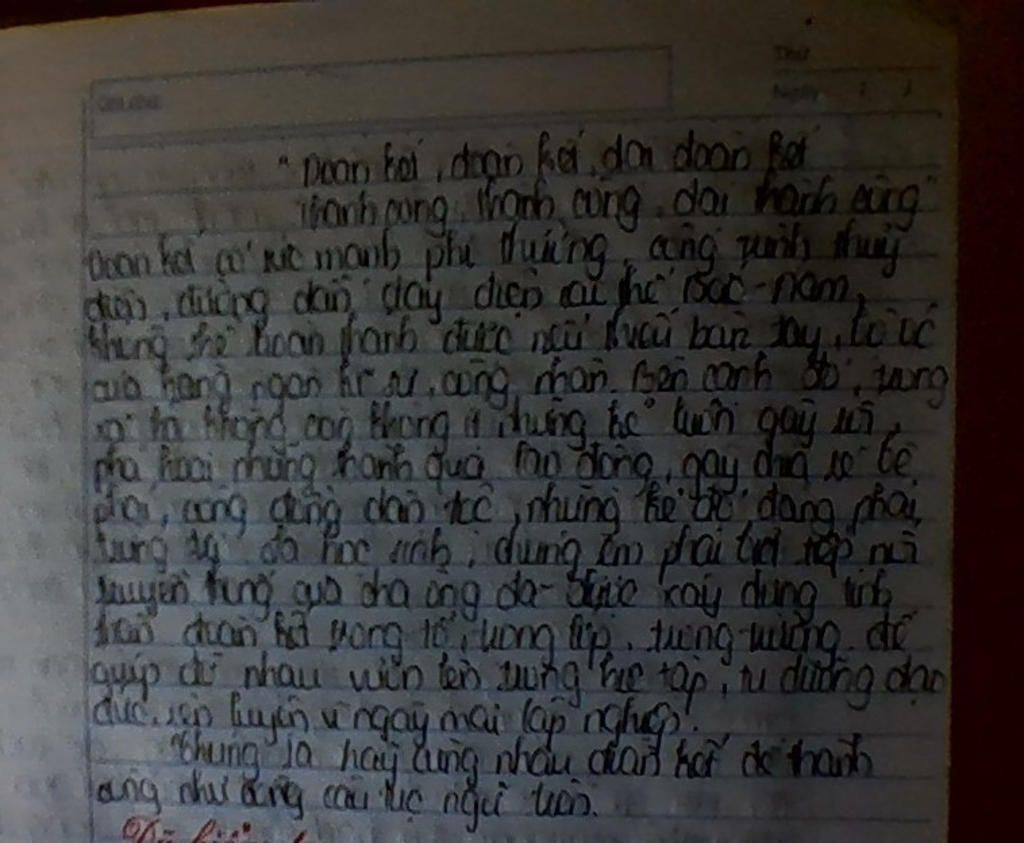 "Đoàn kết, đoàn kết, đại đoàn kết
Thành công, thành công, đại thành công"
Đoàn kết có sức mạnh phi thường, công trình thuỷ
điện, đường dẫn dây điện cao thế Bắc-Nam,
không thể hoàn thành được nếu thiếu bàn tay, bộ óc
của hàng ngàn kĩ sư, công nhân. Bên cạnh đó, trong
xã hội không ít những kẻ luôn gây rối,
phá hoại những thành quả lao động, gây chia rẽ bè
phái, cộng đồng dân tộc, những kẻ đó đáng phải
trừng trị. học sinh, chúng em phải tiếp nối
truyền thống cha ông đã xây dựng tinh
thần đoàn kết trong tổ, trong lớp, trong trường để
giúp đỡ nhau vươn lên trong học tập, tu dưỡng đạo
đức, rèn luyện vì ngày mai lập nghiệp.
Chúng ta hãy cùng nhau đoàn kết để thành
công như câu tục ngữ trên.